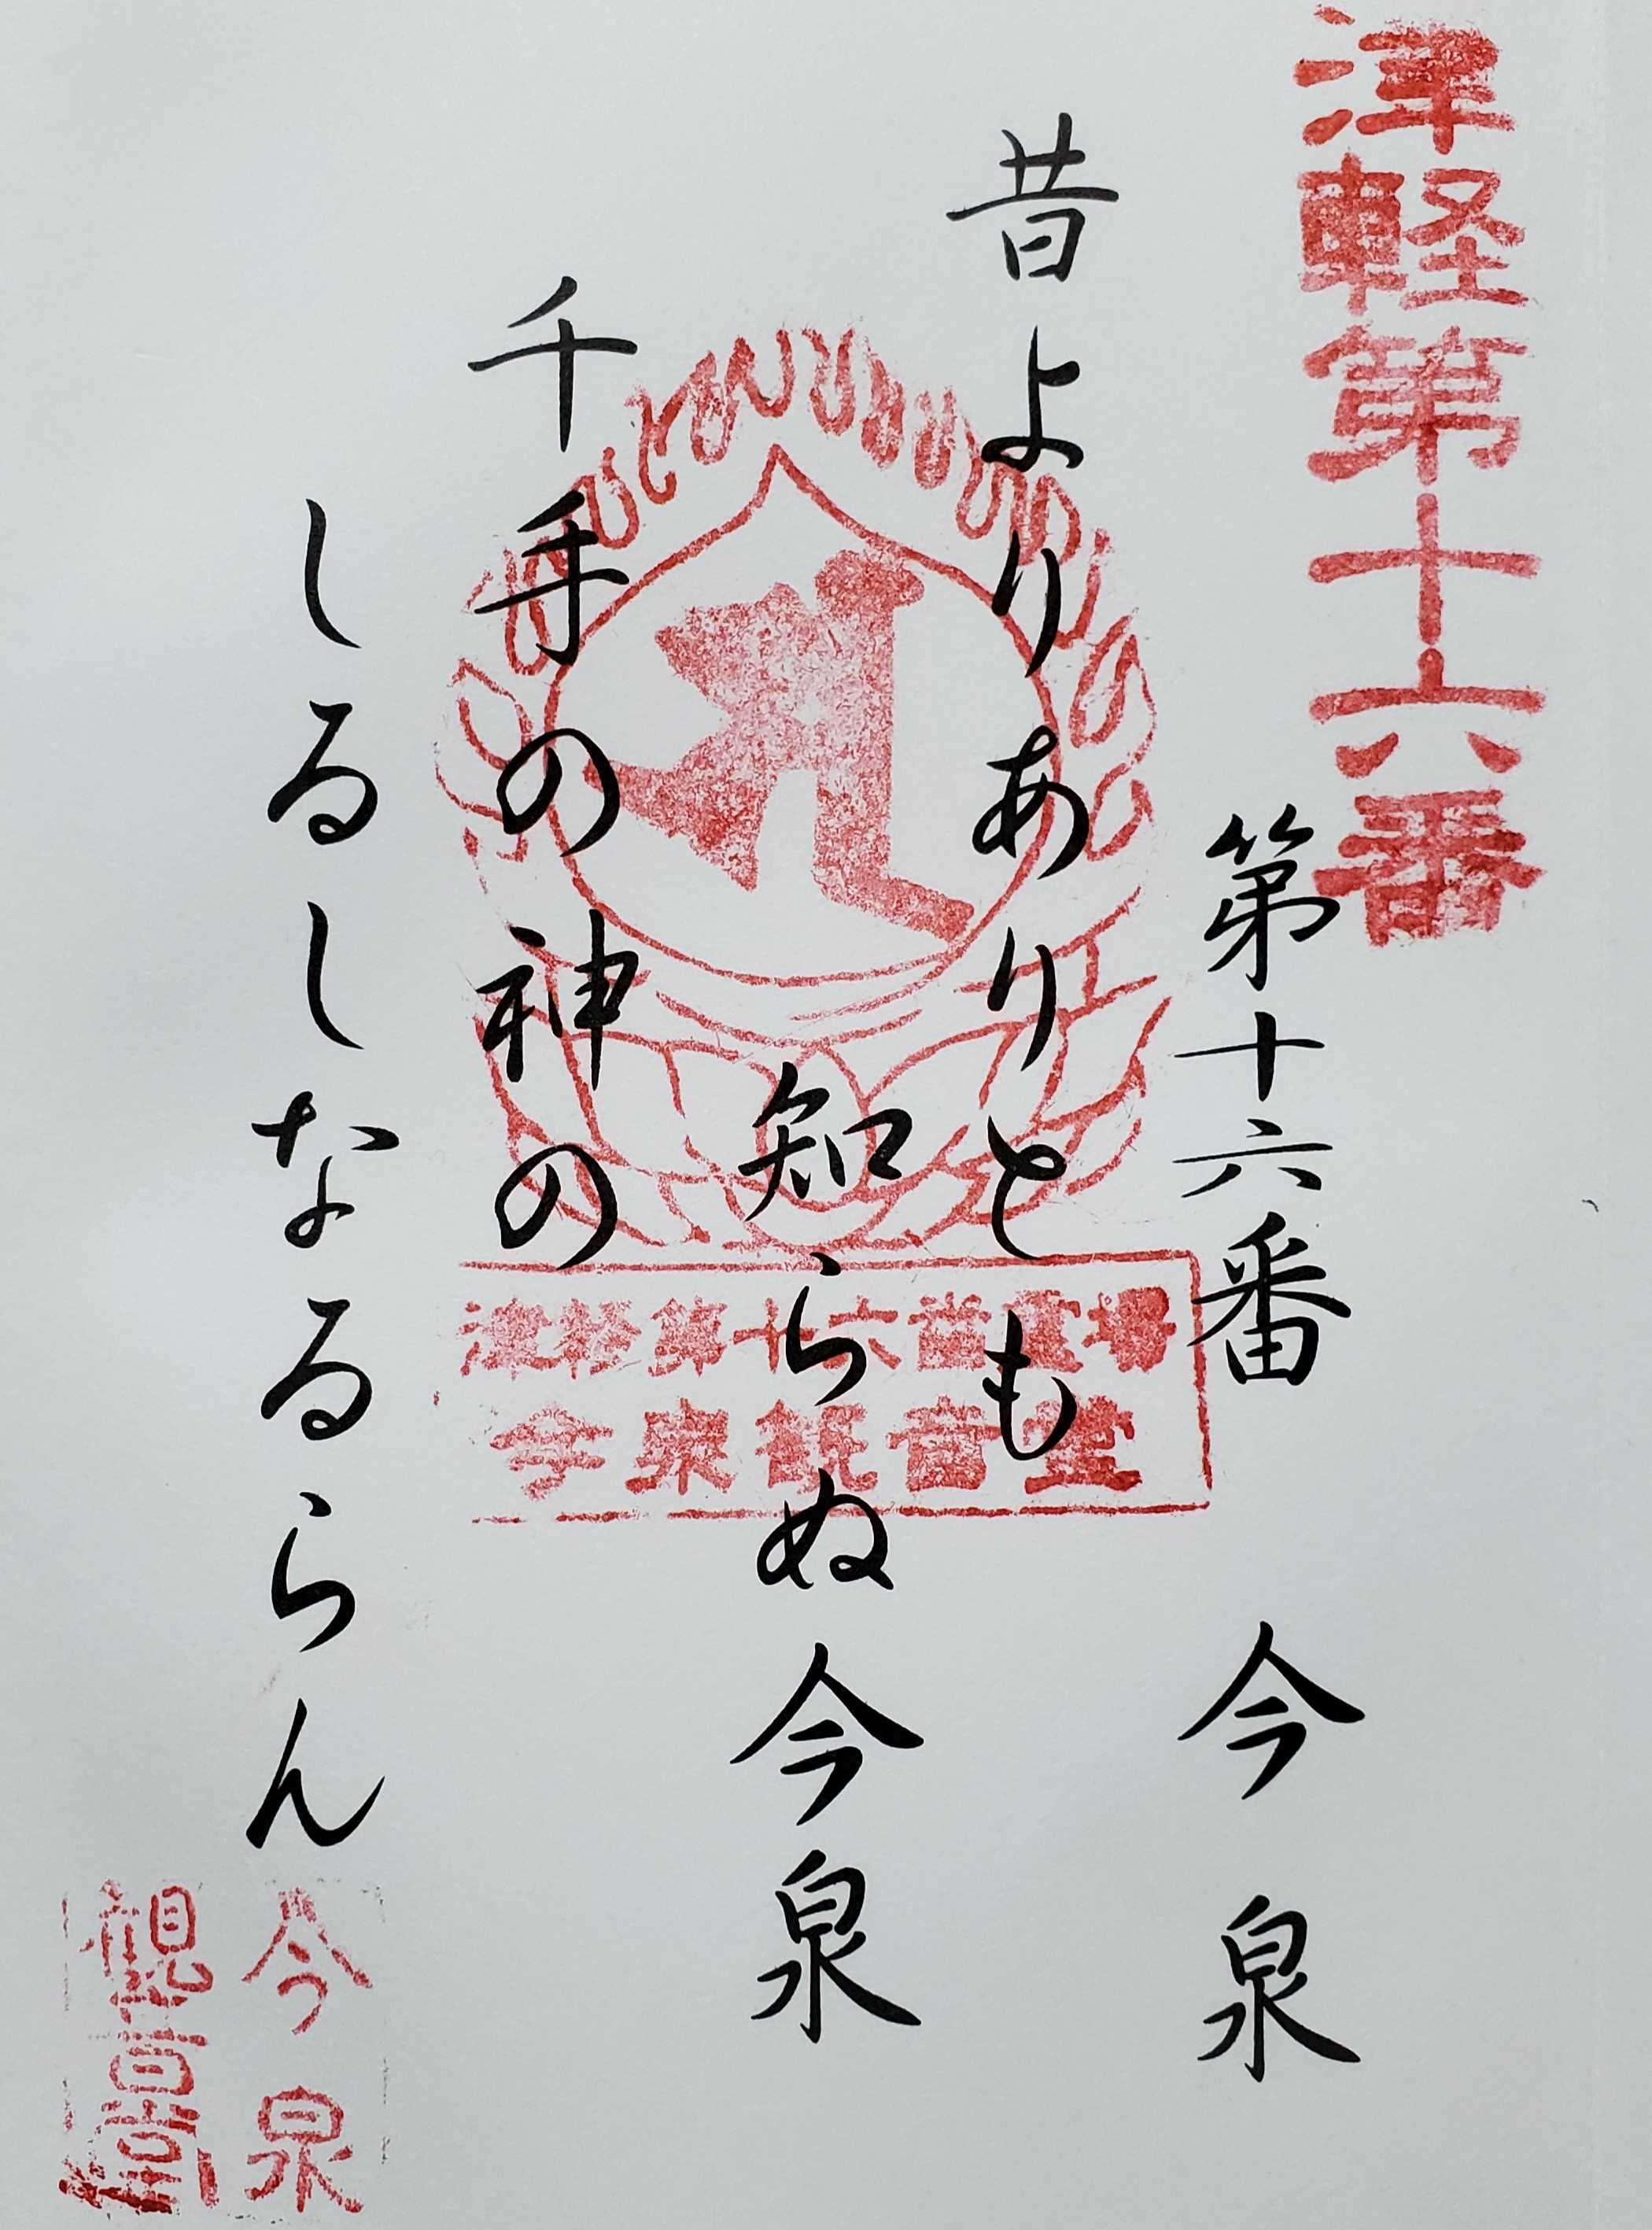 津軽第十六番
第十六番 今泉
昔よりありとも
知らぬ今泉
千手の神の
しるしなるらん
津軽第十六番霊場
今泉観音堂
今泉
観音堂